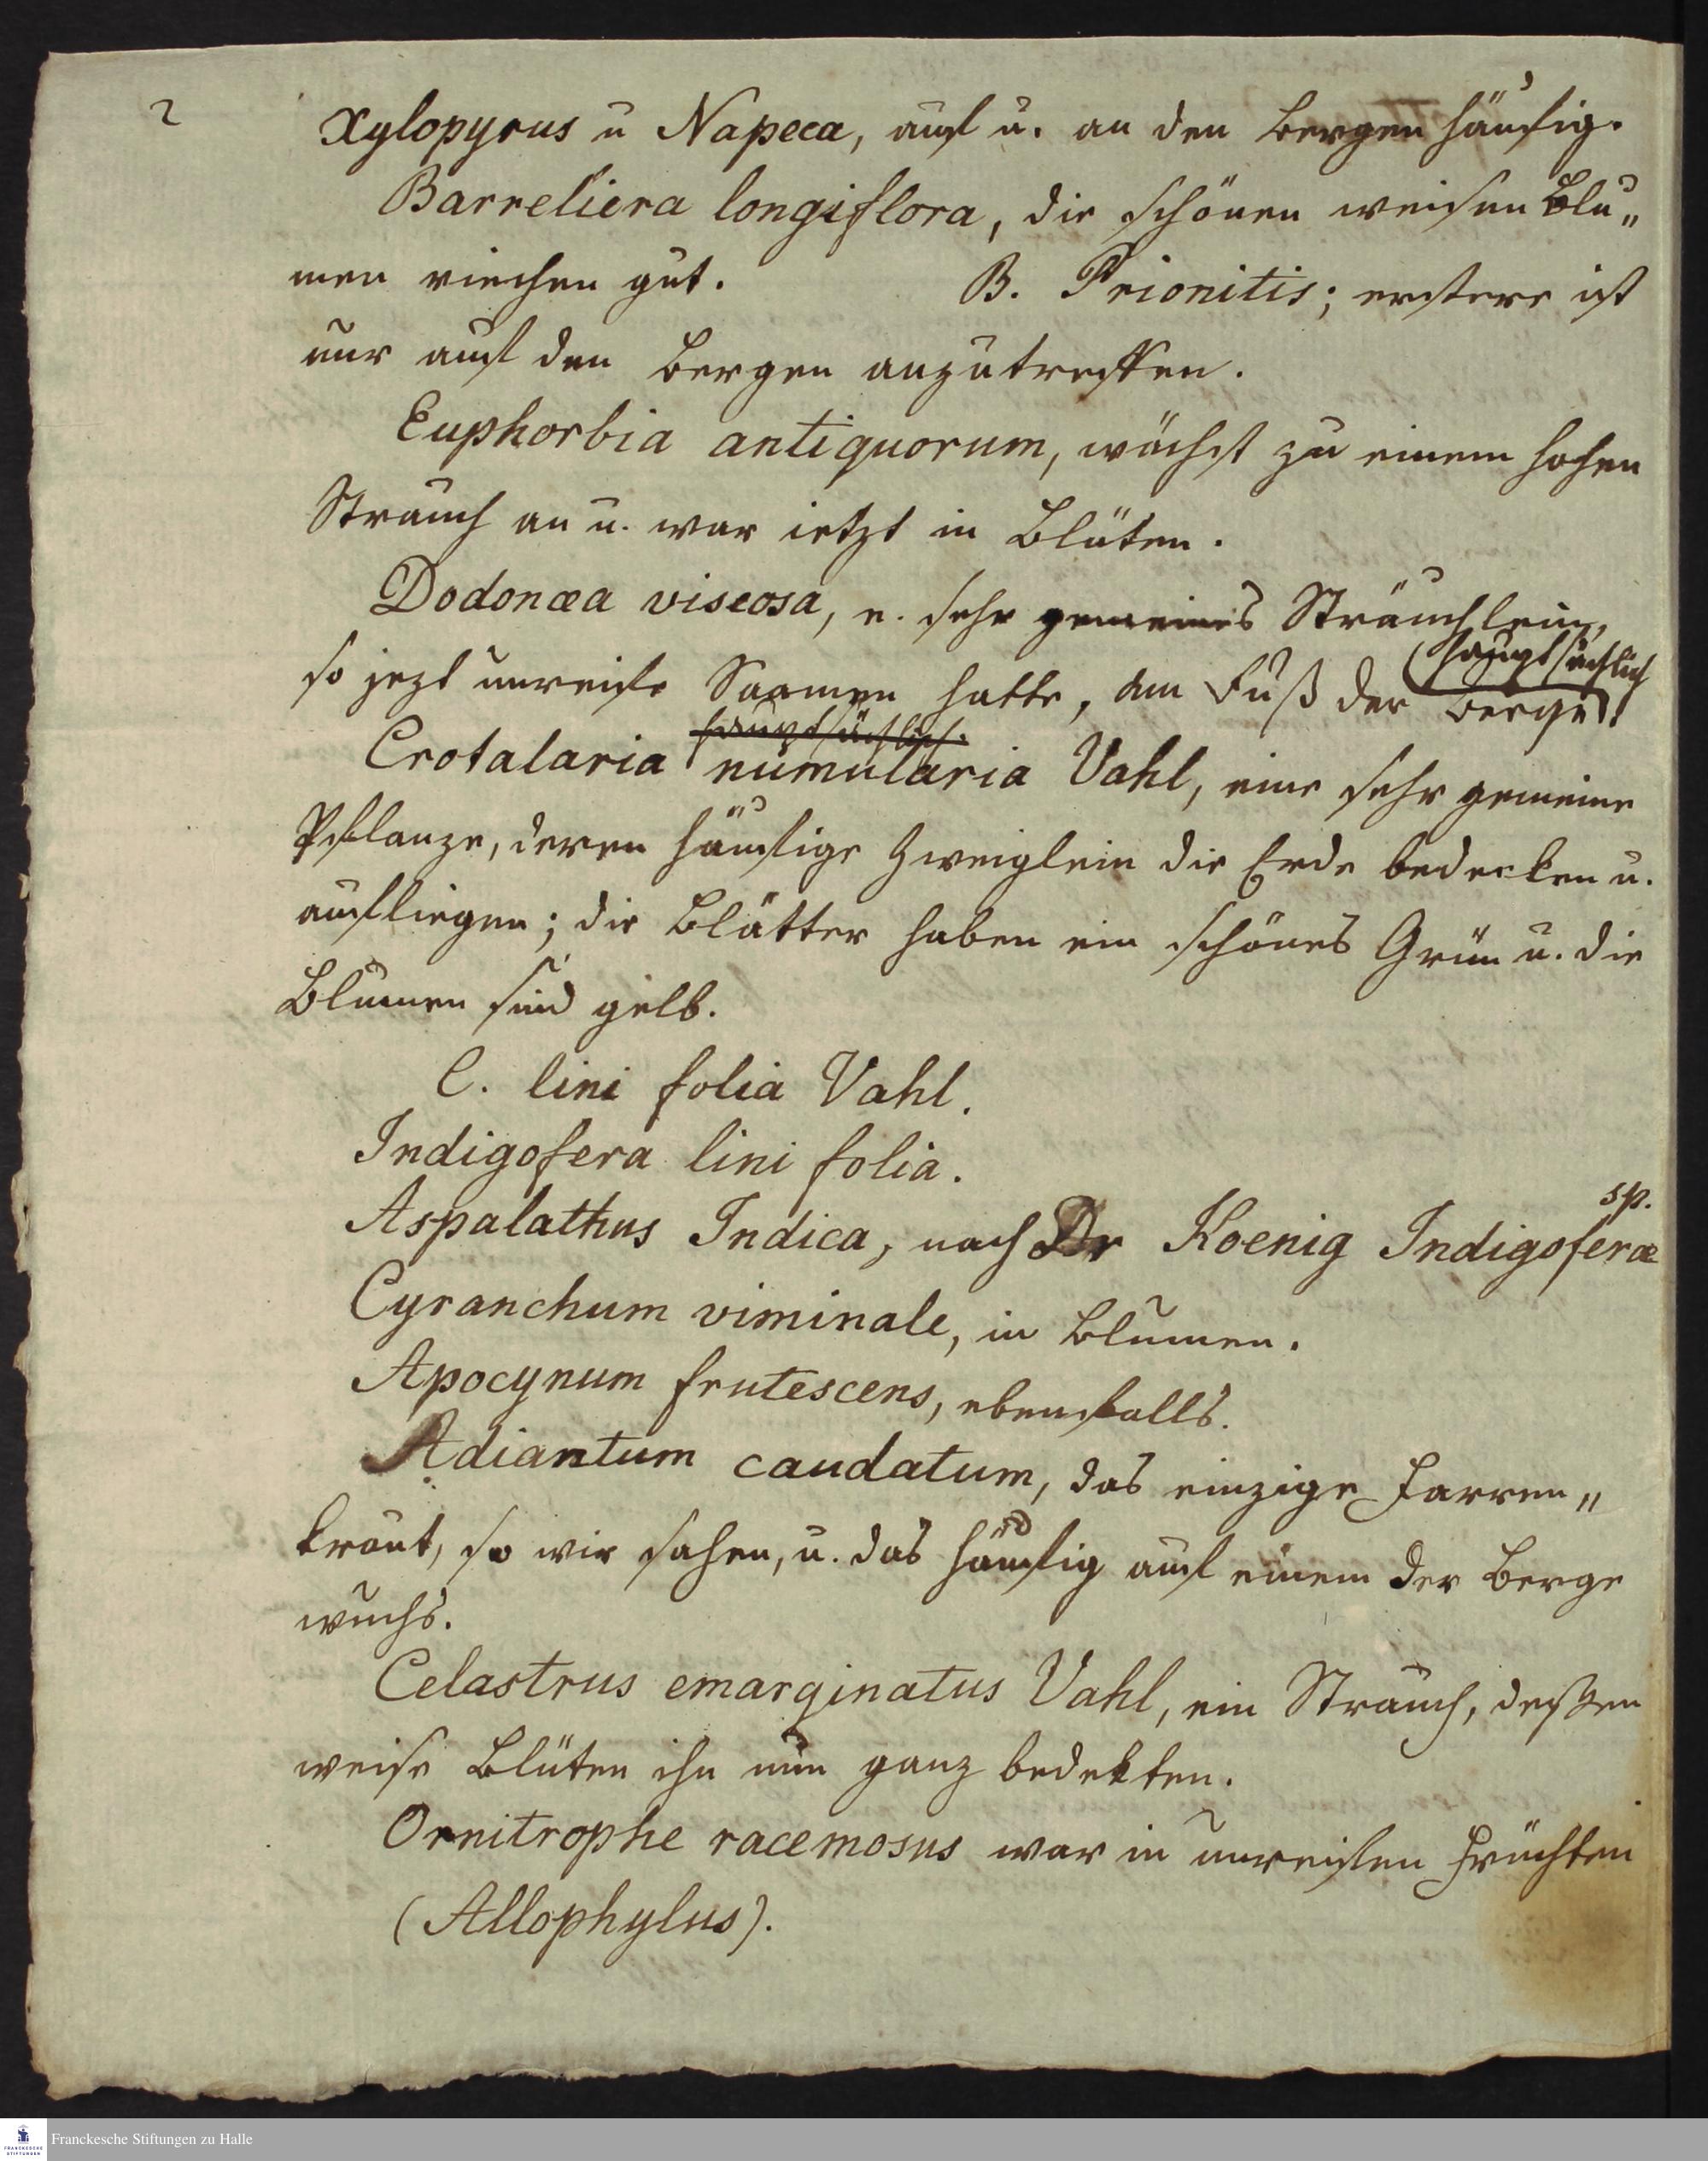 2
Xylopyrus u Napeca, auf u. an den Bergen häufig.
Barreliera longiflora, die schönen weisen Blu„
men riechen gut. B. Prionitis; erstere ist
nur auf den Bergen anzutreffen.
Euphorbia antiquorum, wächst zu einem hohen
Strauch an u. war ietzt in Blüten.
Dodonæa viscosa, e. sehr gemeines Sträuchlein,
hauptsächlich
so jezt unreife Saamen hatte, am Fuß der Berge.
hauptsächlich.
Crotalaria numularia Vahl, eine sehr gemeine
Pflanze, deren häufige Zweiglein die Erde bedecken u.
aufliegen; die Blätter haben ein schönes Grün u. die
Blumen sind gelb.
C. lini folia Vahl.
Indigofera lini folia.
sp.
Aspalathus Indica, nach Dr Koenig Indigoferæ
Cyranchum viminale, in Blumen.
Apocynum frutescens, ebenfalls.
Adiantum caudatum, das einzige Farren„
kraut, so wir sahen, u. das häufig auf einem der Berge
wuchs.
Celastrus emarginatus Vahl, ein Strauch, deßen
weise Blüten ihn nun ganz bedekten.
Ornitrophe racemosus war in unreifen Früchten
(Allophylus).
FRANCKESCHE STIFTUNGEN
Franckesche Stiftungen zu Halle